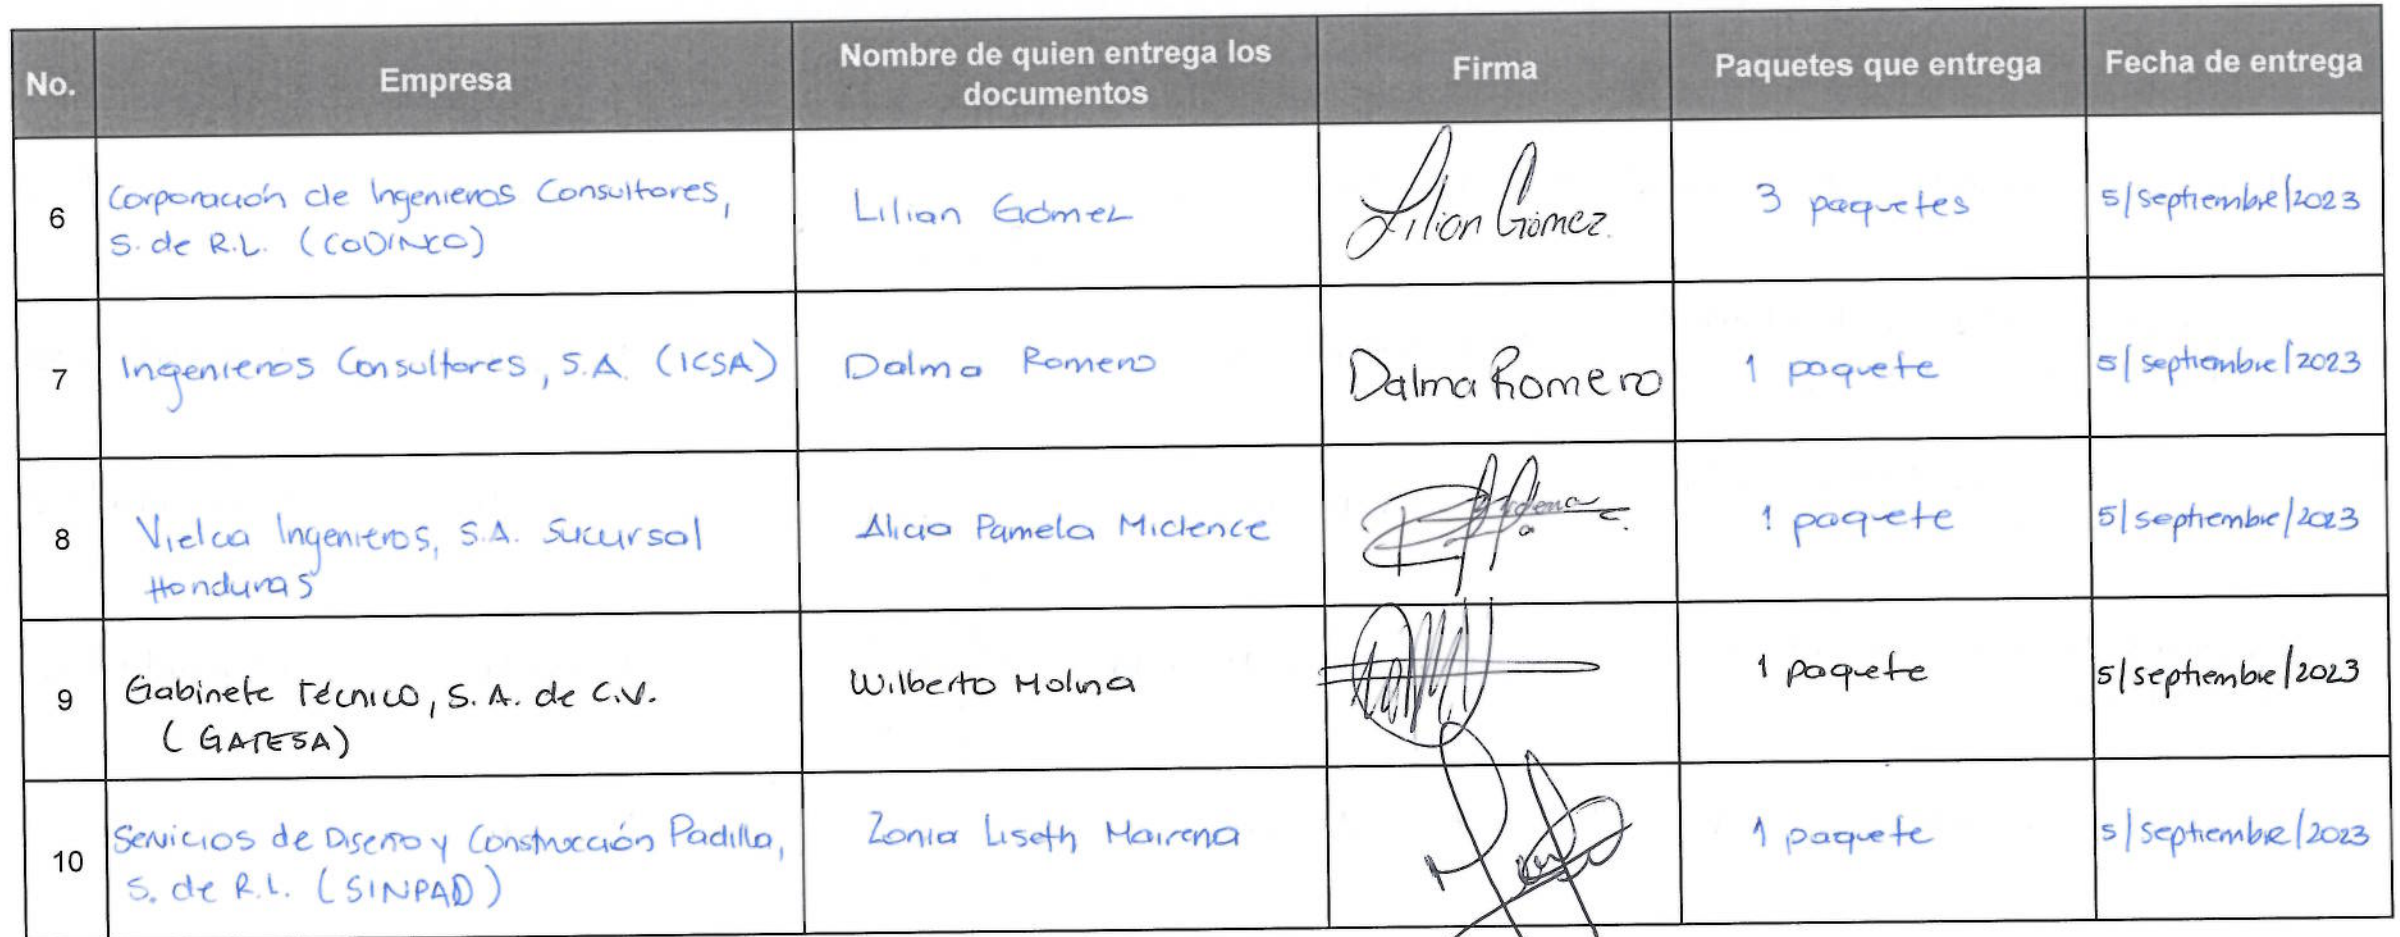 No. Empresa Nombre de quien entrega los documentos Firma Paquetes que entrega Fecha de entrega
6 Corporación de Ingenieros Consultores, S. de R.L. (CODINCO) Lilian Gómez Lilian Gómez. 3 paquetes 5/septiembre/2023
7 Ingenieros Consultores, S.A. (ICSA) Dalma Romero Dalma Romero 1 paquete 5/septiembre/2023
8 Vielca Ingenieros, S.A. Sucursal Honduras Alicia Pamela Midence 1 paquete 5/septiembre/2023
9 Gabinete Técnico, S.A. de C.V. (GATESA) Wilberto Molina 1 paquete 5/septiembre/2023
10 Servicios de Diseño y Construcción Padilla, S. de R.L. (SINPAD) Zonia Liseth Mairena 1 paquete 5/septiembre/2023